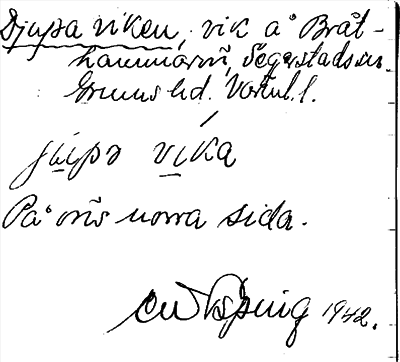 Djupa viken, vik å Bråt-
hammarn, Segerstads sn.
Grums hd. Värml. l.
júpə víka
På öns norra sida.
1942.